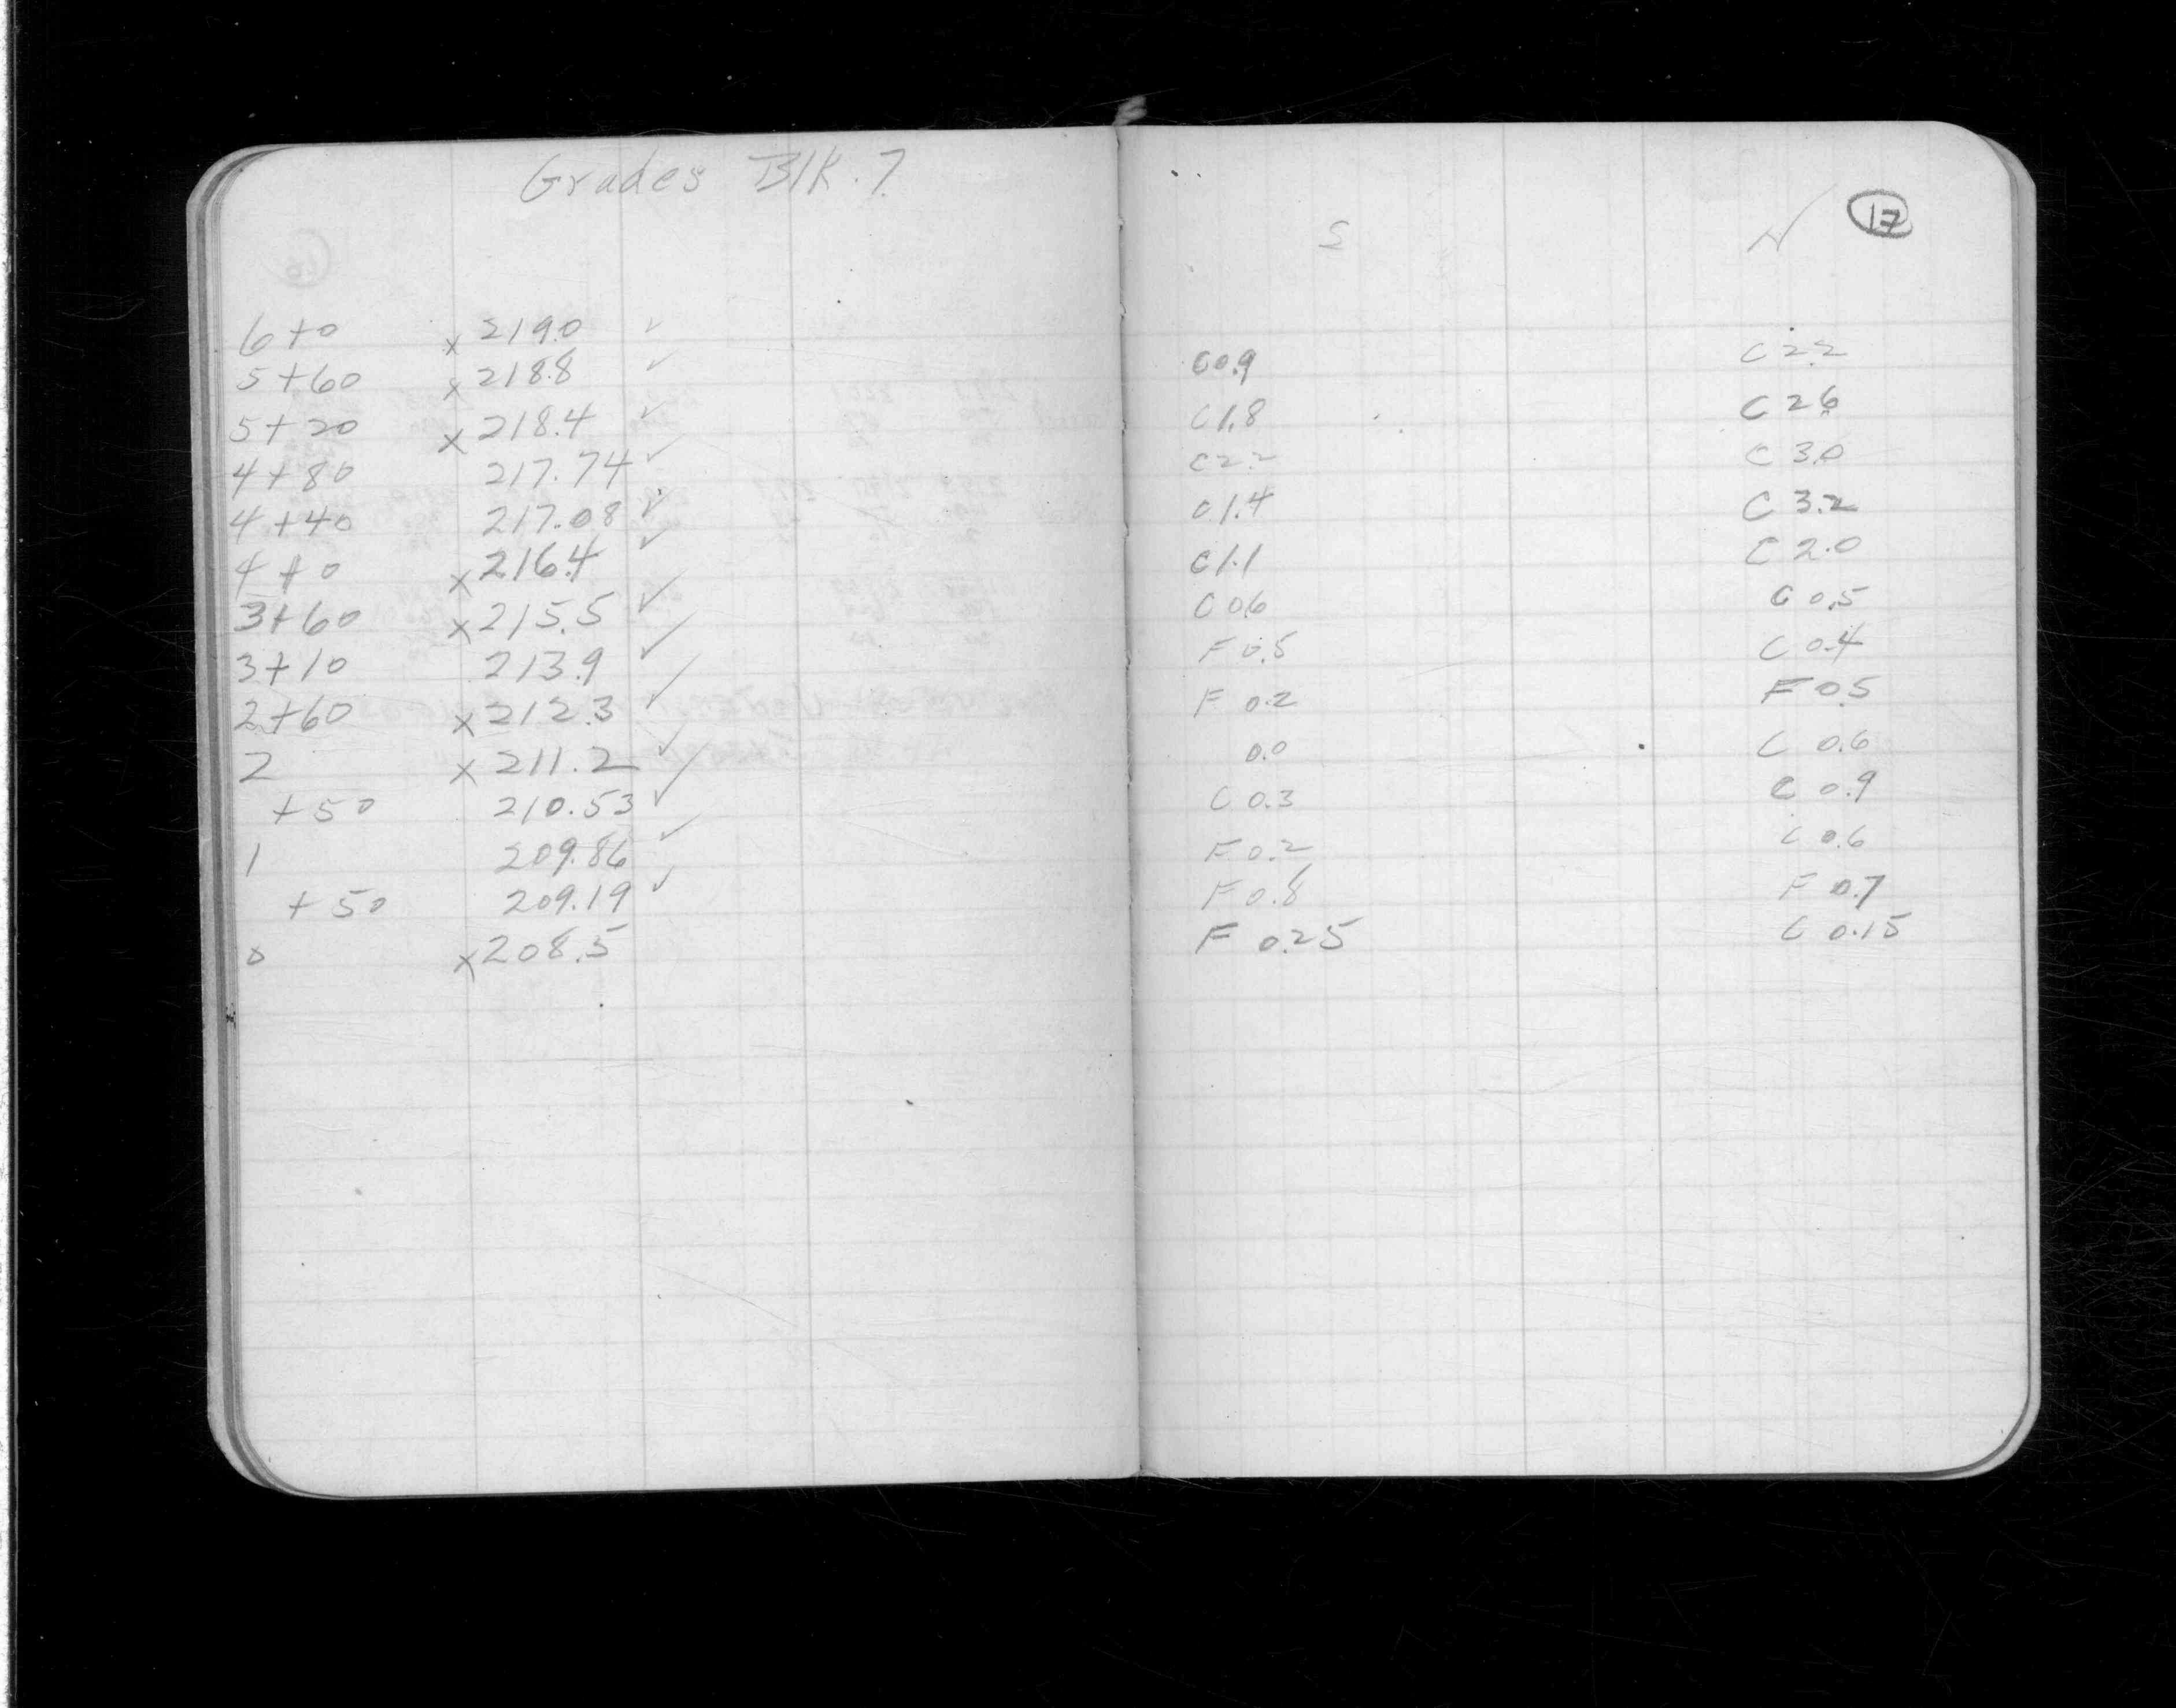 Grades Blk. 7
S N 17
6+0 x 219.0 ✓ C 0.9 C 2.2
5+60 x 218.8 ✓ C 1.8 C 2.6
5+20 x 218.4 ✓ C 2.2 C 3.0
4+80 217.74 ✓ C 1.4 C 3.2
4+40 217.08 ✓ C 1.1 C 2.0
4+0 x 216.4 ✓ C 0.6 C 0.5
3+60 x 215.5 ✓ F 0.5 C 0.4
3+10 213.9 ✓ F 0.2 F 0.5
2+60 x 212.3 ✓ 0.0 C 0.6
2 x 211.2 ✓ C 0.3 C 0.9
+50 210.53 ✓ F 0.2 C 0.6
1 209.86 ✓ F 0.8 F 0.7
+50 209.19 ✓ F 0.25 C 0.15
0 x 208.5